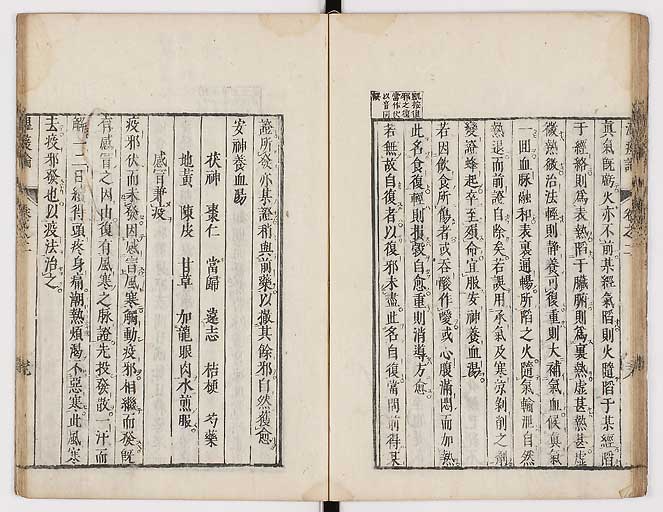 凱按復
邪之復
當作伏
以音同
眞氣既虧火亦不前某經氣陷則火隨陷于某經陷
于經絡則爲表熱陷于臟腑則爲裏熱虛甚熱甚虛
微熱微治法輕則靜養可復重則大補氣血候眞氣
一回血脈融和表裏通暢所陷之火隨氣輸泄自然
熱退而前證自除矣若誤用承氣及寒凉剝削之劑
變證蜂起卒至殞命宜服安神養血湯
若因飲食所傷者或吞酸作噯或心腹滿悶而加熱
此名食復輕則損穀自愈重則消導方愈
若無故自復者以復邪未盡此名自復當問前得某
證所發亦某證稍與前藥以徹其餘邪自然獲愈
安神養血湯
茯神 棗仁 當歸 遠志 桔梗 芍藥
地黃 陳皮 甘草 加龍眼肉水煎服
感冒兼疫
疫邪伏而未發因感冒風寒觸動疫邪相繼而發既
有感冒之因由復有風寒之脈證先投發散一汗而
解一二日續得頭疼身痛潮熱煩渴不惡寒此風寒
去疫邪發也以疫法治之